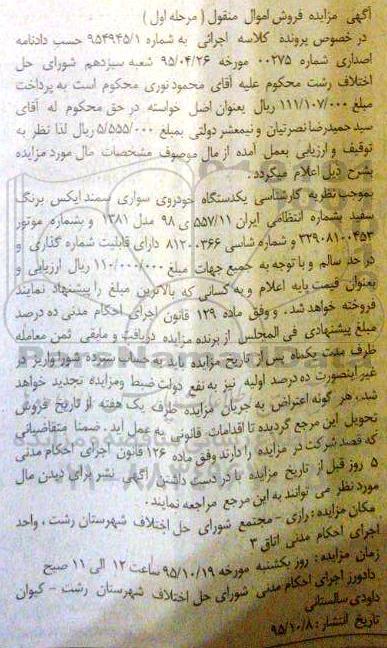 آگهی مزایده فروش اموال منقول (مرحله اول)
در خصوص پرونده کلاسه اجرائی به شماره ۹۵۴۹۴۵/۱ حسب دادنامه
اصداری شماره ۰۰۲۷۵ مورخه ۹۵/۰۴/۲۶ شعبه سیزدهم شورای حل
اختلاف رشت محکوم علیه آقای محمود نوری محکوم است به پرداخت
مبلغ ۱۱۱/۱۰۷/۰۰۰ ریال بعنوان اصل خواسته در حق محکوم له آقای
سید حمیدرضا نصرتیان و نیمعشر دولتی بمبلغ ۵/۵۵۵/۰۰۰ ریال لذا نظر به
توقیف و ارزیابی بعمل آمده از مال موصوف مشخصات مال مورد مزایده
بشرح ذیل اعلام میگردد.
بموجب نظریه کارشناسی یکدستگاه خودروی سواری سمند ایکس برنگ
سفید بشماره انتظامی ایران ۵۵۷/۱۱ ی ۹۸ مدل ۱۳۸۱ و بشماره موتور
۳۲۹۰۸۱۰۰۴۵۳ و شماره شاسی ۸۱۲۰۰۳۶۶ دارای قابلیت شماره گذاری و
در حد سالم و با توجه به جمیع جهات مبلغ ۱۱۰/۰۰۰/۰۰۰ ریال ارزیابی و
بعنوان قیمت پایه اعلام و به کسانی که بالاترین مبلغ را پیشنهاد نمایند
فروخته خواهد شد. و وفق ماده ۱۲۹ قانون اجرای احکام مدنی ده درصد
مبلغ پیشنهادی فی المجلس از برنده مزایده دریافت و مابقی ثمن معامله
ظرف مدت یکماه پس از تاریخ مزایده باید به حساب سپرده شورا واریز در
غیر اینصورت ده درصد اولیه نیز به نفع دولت ضبط ومزایده تجدید خواهد
شد، هر گونه اعتراض به جریان مزایده ظرف یک هفته از تاریخ فروش
تحویل این مرجع گردیده تا اقدامات قانونی به عمل اید. ضمنا متقاضیانی
که قصد شرکت در مزایده را دارند وفق ماده ۱۲۶ قانون اجرای احکام مدنی
۵ روز قبل از تاریخ مزایده با در دست داشتن آگهی نشر برای دیدن مال
مورد نظر می توانند به این مرجع مراجعه نمایند.
مکان مزایده: رازی - مجتمع شورای حل اختلاف شهرستان رشت، واحد
اجرای احکام مدنی اتاق ۳
زمان مزایده: روز یکشنبه مورخه ۹۵/۱۰/۱۹ ساعت ۱۲ الی ۱۱ صبح
دادورز اجرای احکام مدنی شورای حل اختلاف شهرستان رشت - کیوان
داودی سالستانی
تاریخ انتشار: ۹۵/۱۰/۸